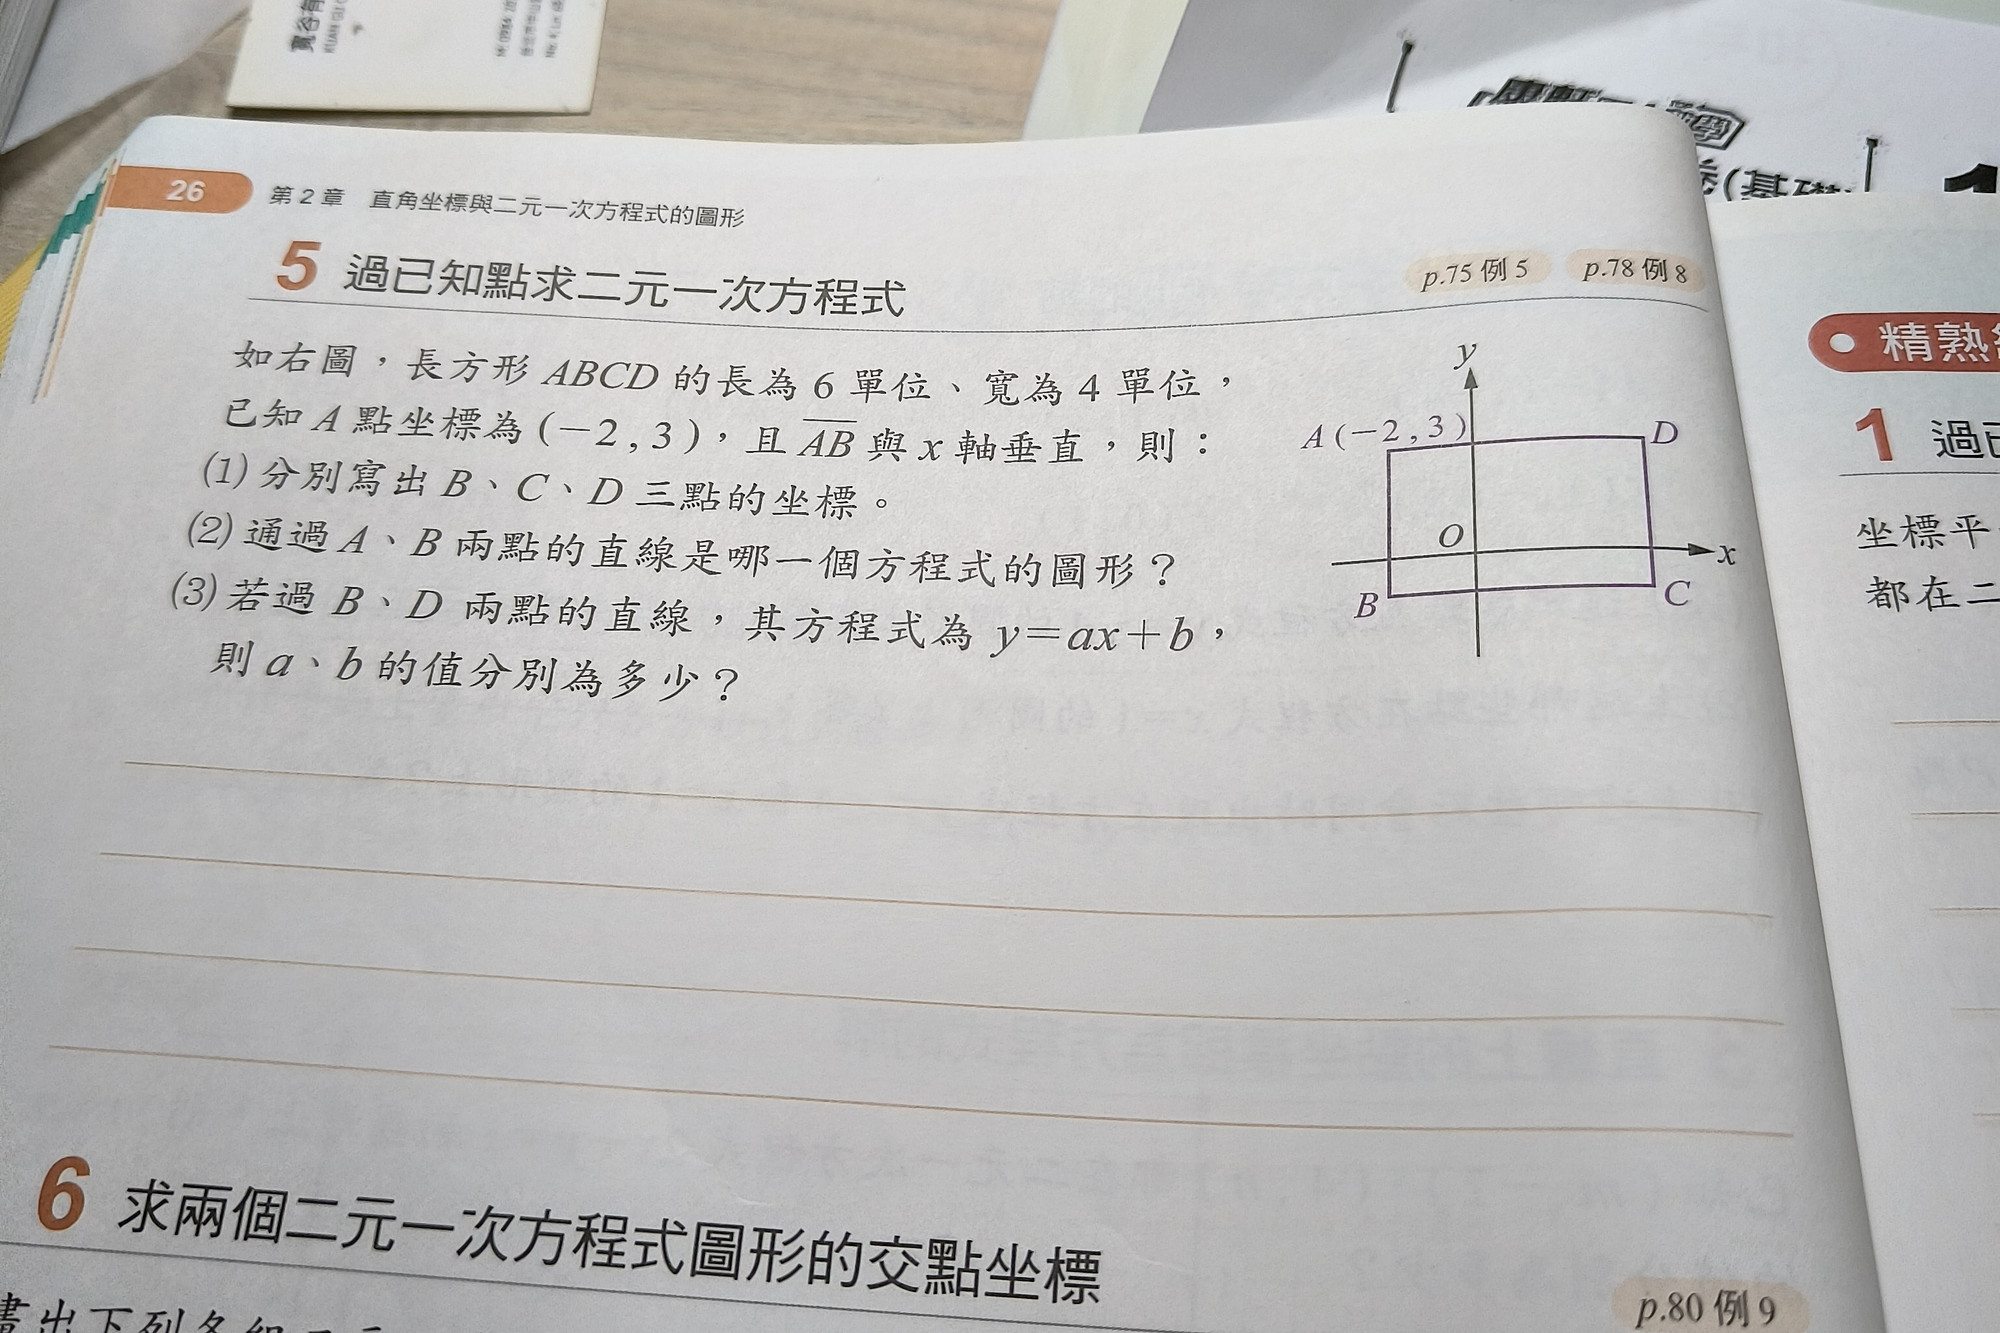 寬谷有
KUAN GU
26 第2章 直角坐標與二元一次方程式的圖形
5 過已知點求二元一次方程式 p.75 例 5 p.78 例 8
如右圖，長方形 ABCD 的長為 6 單位、寬為 4 單位，
已知 A 點坐標為 (－2 , 3 )，且 A͞B͞ 與 x 軸垂直，則：
(1) 分別寫出 B、C、D 三點的坐標。
(2) 通過 A、B 兩點的直線是哪一個方程式的圖形？
(3) 若過 B、D 兩點的直線，其方程式為 y＝ax＋b，
則 a、b 的值分別為多少？
y
A (－2 , 3 )
D
O
x
B
C
6 求兩個二元一次方程式圖形的交點坐標
p.80 例 9
畫出下列各組二元
(基礎)
1
精熟
1 過已
坐標平
都在二